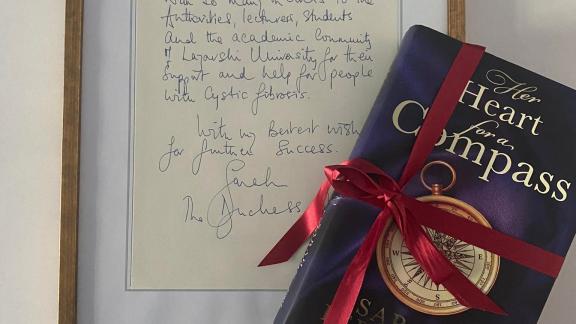 with so many thanks to the
Authorities, lecturers, students
and the academic community
of Lazarski University for their
support and help for people
with Cystic fibrosis.
With my Bestest wish
for further Success.
Sarah
The Duchess
Her
Heart
for a
Compass
SAR